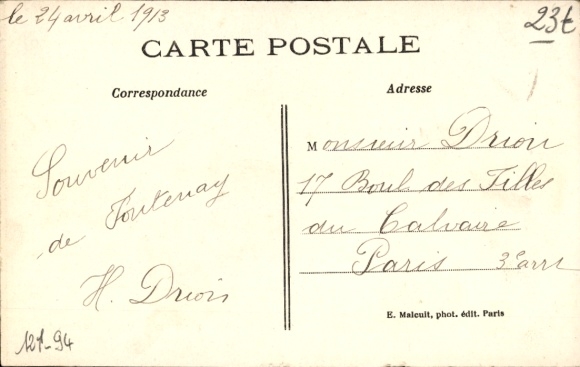 le 24 avril 1913
23t
CARTE POSTALE
Correspondance
Adresse
Souvenir
de Fontenay
H. Drion
Monsieur Drion
17 Boul des Filles
du Calvaire
Paris 3e arrt
E. Malcuit, phot. édit. Paris
121-94